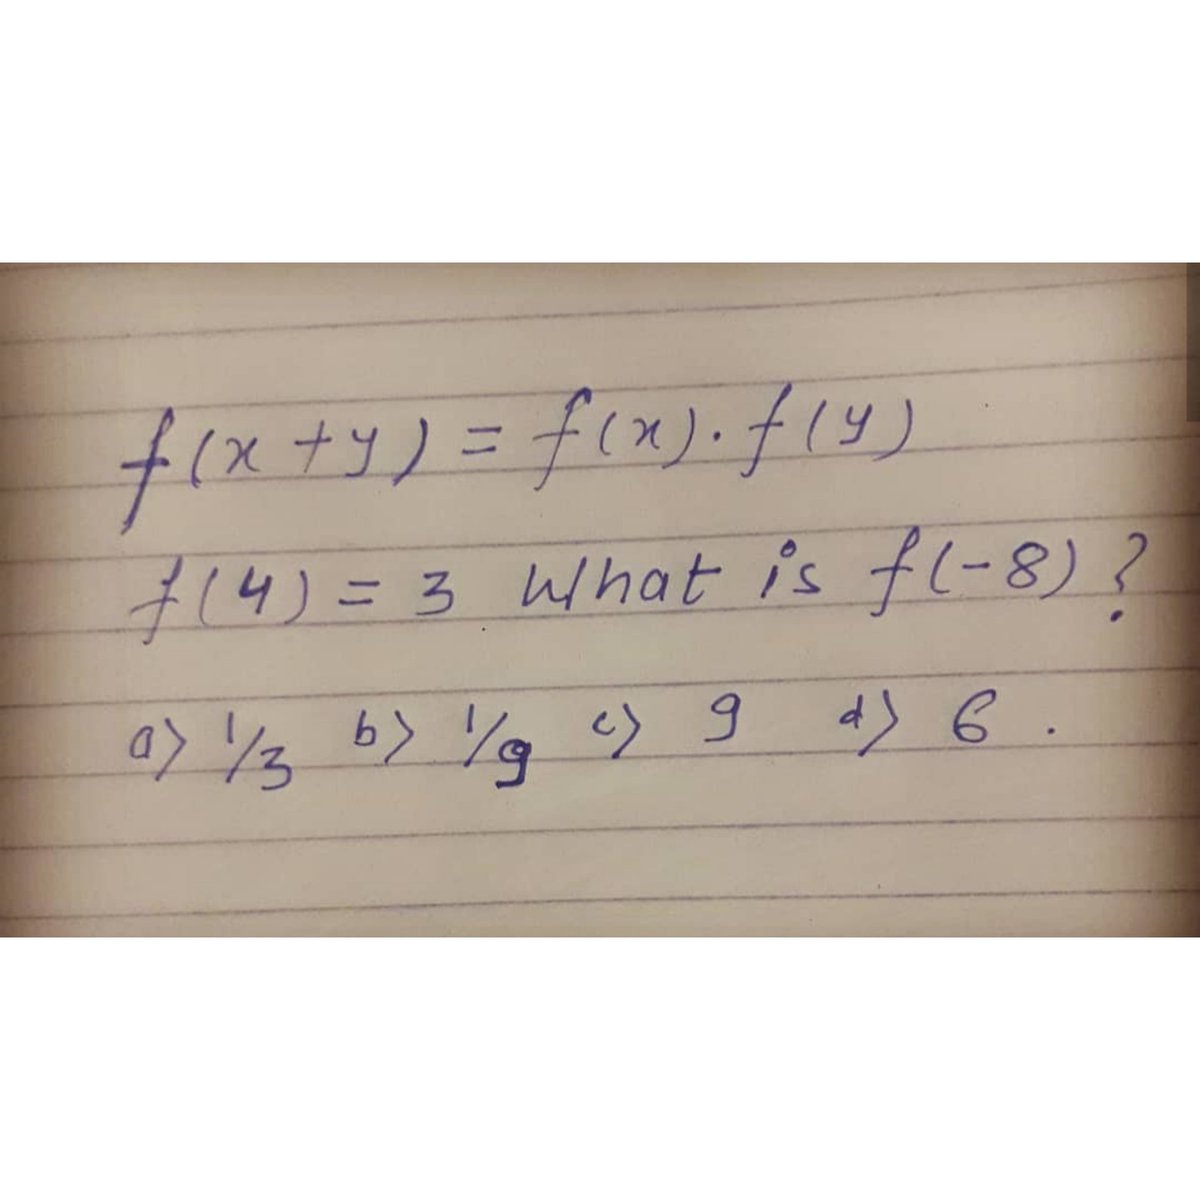 f(x+y) = f(x).f(y)
f(4) = 3 What is f(-8) ?
a) 1/3 b) 1/9 c) 9 d) 6 .